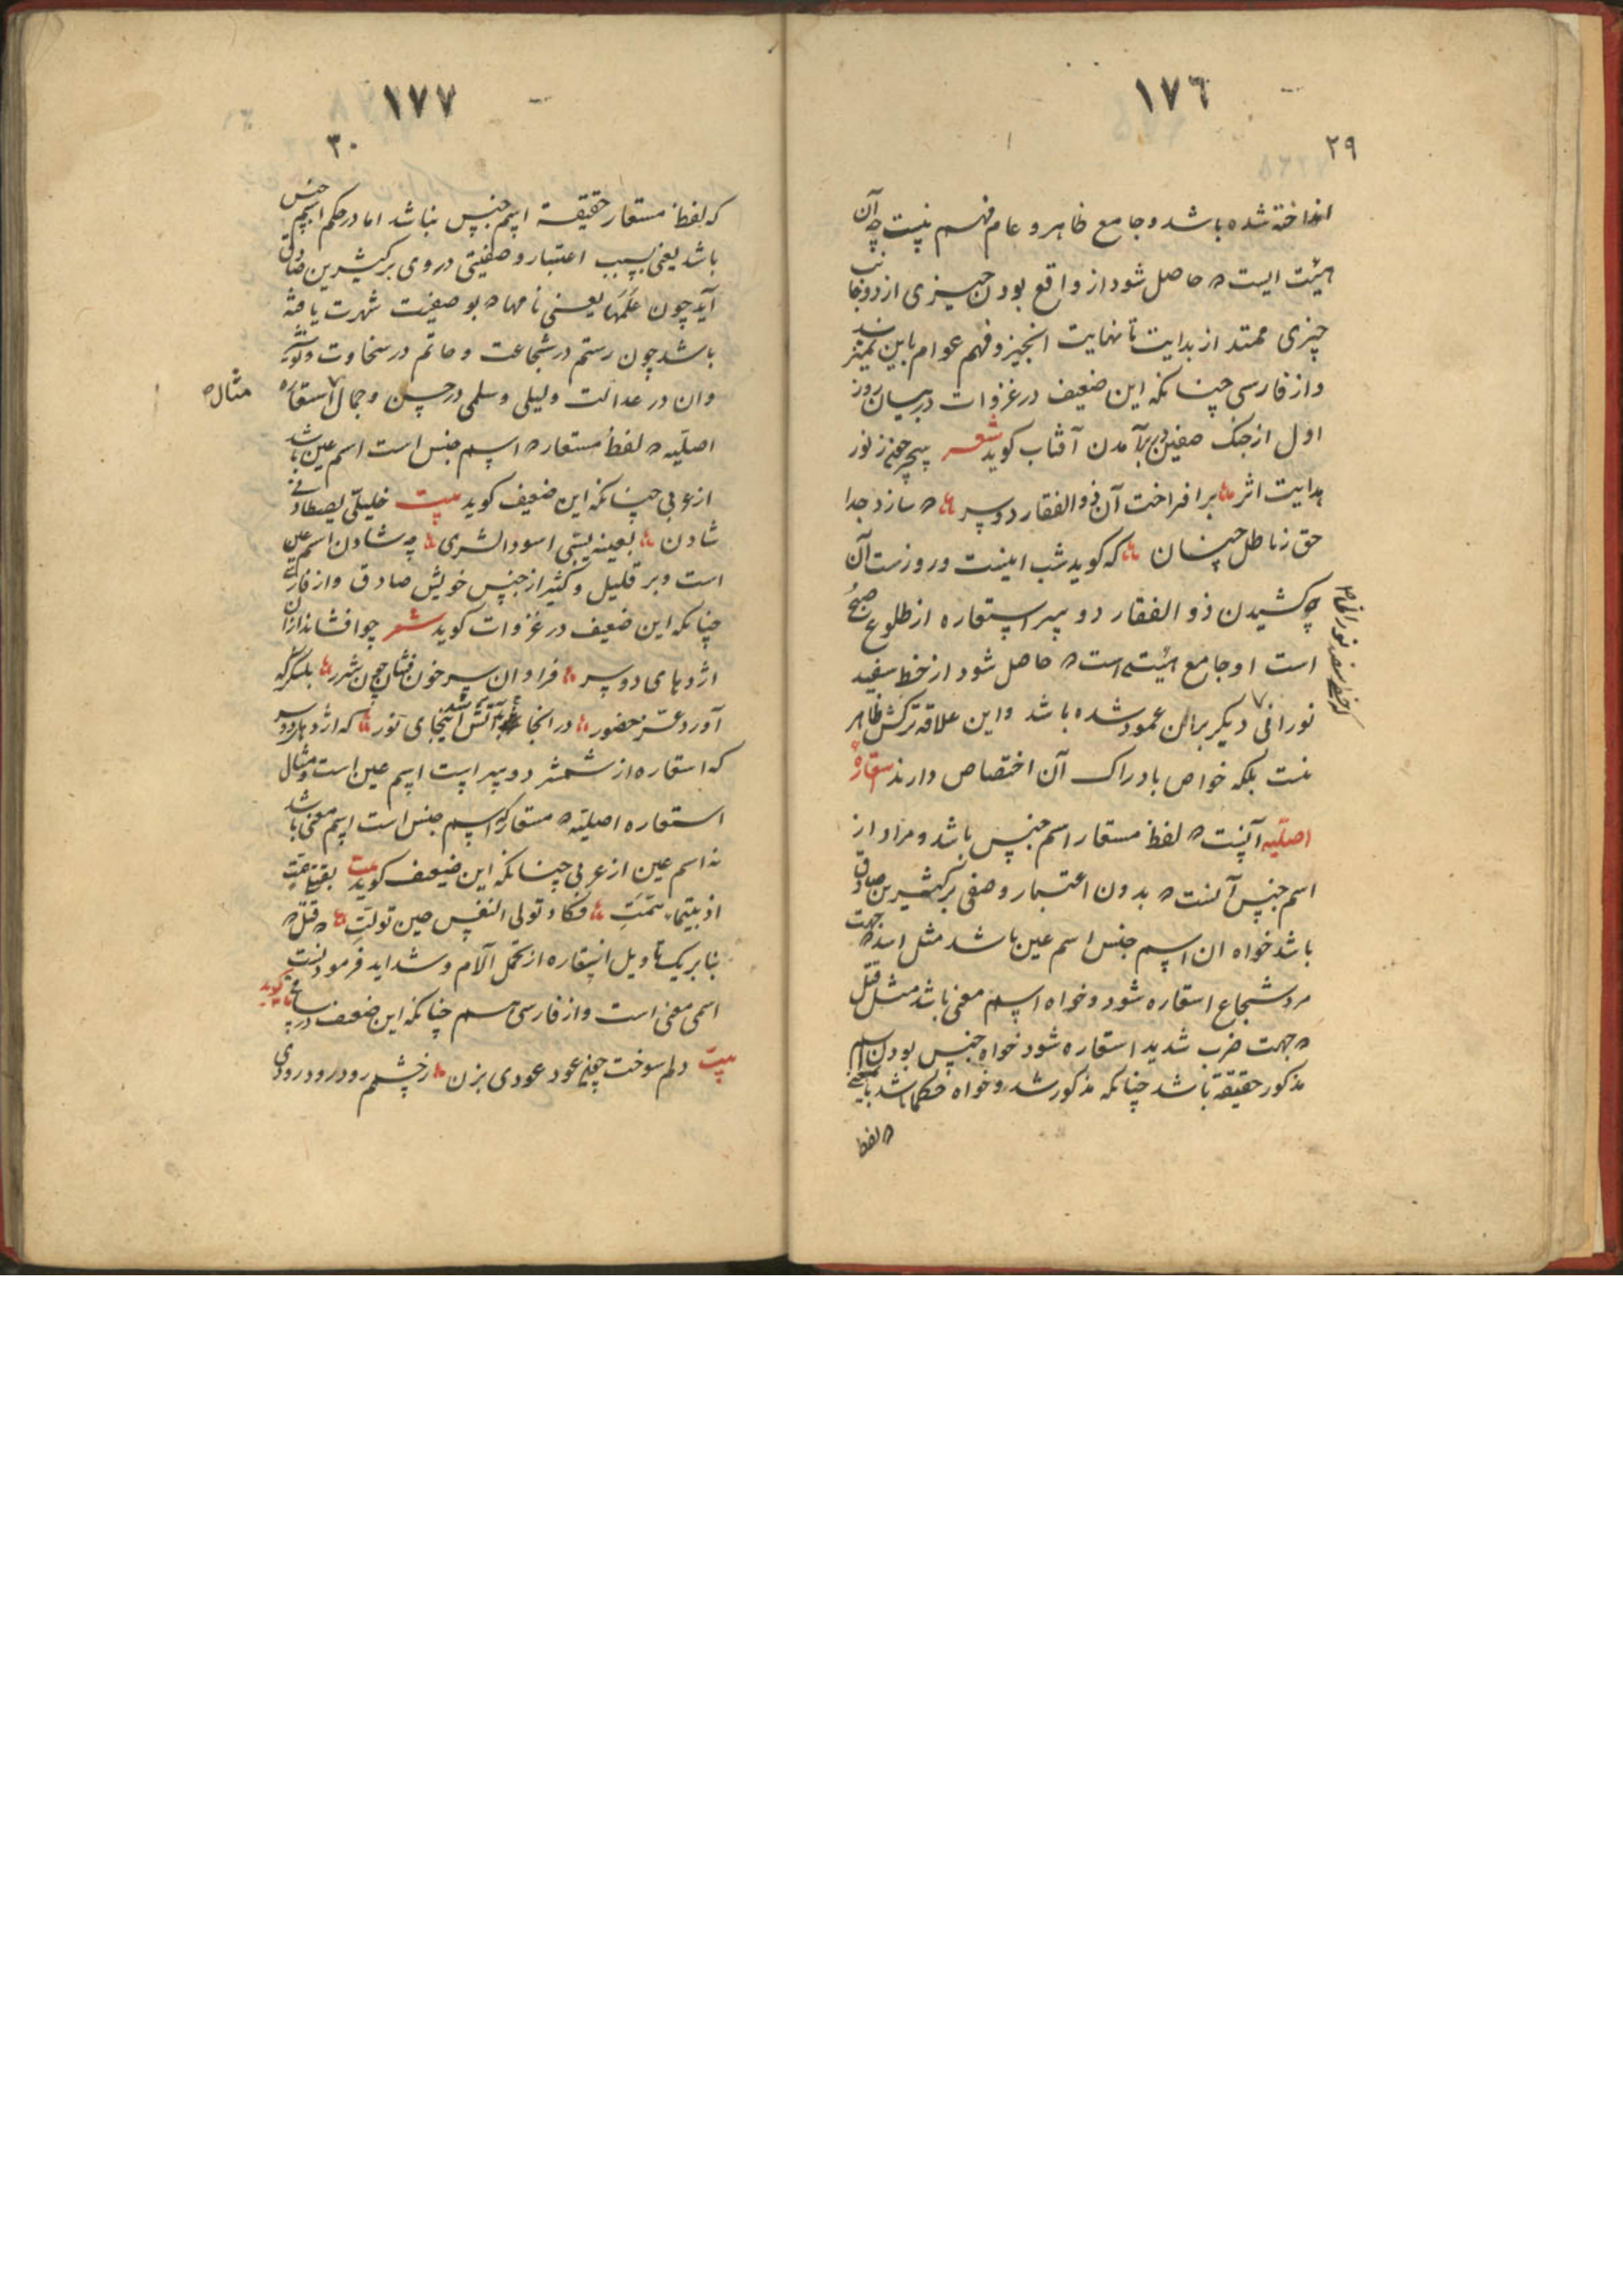 ١٧٦
٢٩
انداخته شده باشد و جامع ظاهر و عام فهم نیست چه آن
هیئت ایست که حاصل شود از واقع بودن چیزی از دو جانب
چیزی ممتد از بدایت تا نهایت انچیز و فهم عوام باین نمیرسد
و از فارسی چنانکه این ضعیف در غزوات در بیان روز
اول از جنک صفین در برآمدن آفتاب کوید شعر سپهر ز نور
هدایت اثر برافراخت آن ذو الفقار دو سر که سازد جدا
حق ز باطل چنان که کوید شب اینست و روزست آن
چه کشیدن ذو الفقار دو سر استعاره از طلوع صبح
است و جامع هیئتی است که حاصل شود از خط سفید
نورانی دیکر بران عمود شده باشد و این علاقه ترکش ظاهر
نیست بلکه خواص بادراک آن اختصاص دارند استعاره
اصلیه آنست که لفظ مستعار اسم جنس باشد و مراد از
اسم جنس آنست که بدون اعتبار وصفی بر کثیرین صادق
باشد خواه ان اسم جنس اسم عین باشد مثل اسد که جهت
مرد شجاع استعاره شود و خواه اسم معنی باشد مثل قتل
که جهت ضرب شدید استعاره شود خواه جنس بودن اسم
مذکور حقیقة باشد چنانکه مذکور شد و خواه حکما باشد
که لفظ
١٧٧
٣٠
که لفظ مستعار حقیقة اسم جنس نباشد اما در حکم اسم جنس
باشد یعنی بسبب اعتبار وصفیتی در وی بر کثیرین صادق
آید چون علمها یعنی نامها که بوصفیت شهرت یافته
باشد چون رستم در شجاعت و حاتم در سخاوت و نوشیر
وان در عدالت و لیلی و سلمی در حسن و جمال استعاره
مثال
اصلیه که لفظ مستعار که اسم جنس است اسم عین باشد
از عربی چنانکه این ضعیف کوید بیت خلیلی یصطاد
شادن بعینه یسبی اسود الشری چه شادن اسم عین
است و بر قلیل و کثیر از جنس خویش صادق و از فارسی
چنانکه این ضعیف در غزوات کوید شعر چو افشاند ازان
اژدهای دو سر فراوان سر خون فشان چون شرر
آورد عرز حضور در انجا آتش اینجای نور که اژدهای دو سر
که استعاره از شمشیر دو سر است اسم عین است و مثال
استعاره اصلیه که مستعار که اسم جنس است اسم معنی باشد
نه اسم عین از عربی چنانکه این ضعیف کوید بیت
تولی النفس حین تولت که قتل که
بنا بر یک تاویل استعاره از تحمل آلام و شداید فرمودنست
اسمی معنی است و از فارسی هم چنانکه این ضعیف در
کوید
بیت دلم سوخت عود عودی بزن ز چشمم رود رود رودی